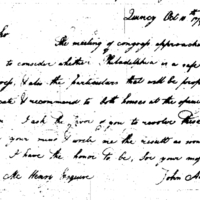 Quincy Oct 11th 17
The meeting of congress approaches
to consider whether Philadelphia is a safe
& also the particulars that will be prop
& recommend to both houses at the openi
I ask the favor of you to revolve these
your mind & write me the result as soon
I have the honor to be, Sir your most
Mc Henry Esquire
John A